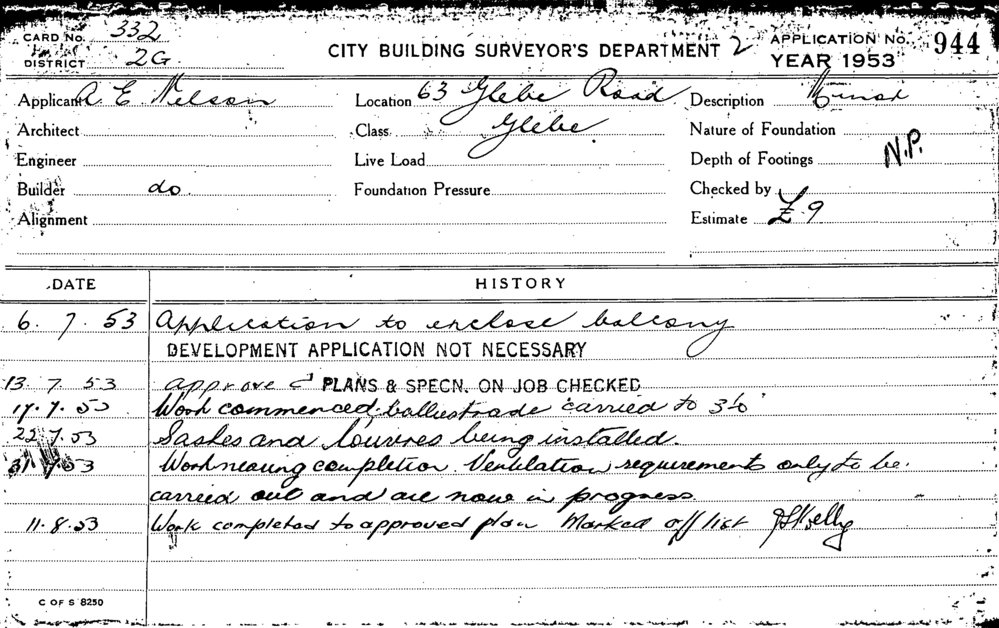 CARD No. 332
DISTRICT 2G.
CITY BUILDING SURVEYOR'S DEPARTMENT 2
APPLICATION No. 944
YEAR 1953
Applicant A E Nelson
Location 63 Glebe Road
Description Minor
Architect
Class Glebe
Nature of Foundation
Engineer
Live Load
Depth of Footings N.P.
Builder do
Foundation Pressure
Checked by
Alignment
Estimate £9
DATE HISTORY
6. 7. 53 Application to enclose balcony
DEVELOPMENT APPLICATION NOT NECESSARY
13. 7. 53 approved PLANS & SPECN. ON JOB CHECKED
17. 7. 53 Work commenced. ballustrade carried to 3'6"
22.7.53 Sashes and louvres being installed.
31.7.53 Work nearing completion. Ventilation requirements only to be
carried out and are now in progress
11.8.53 Work completed to approved plan Marked off list
C OF S 8250